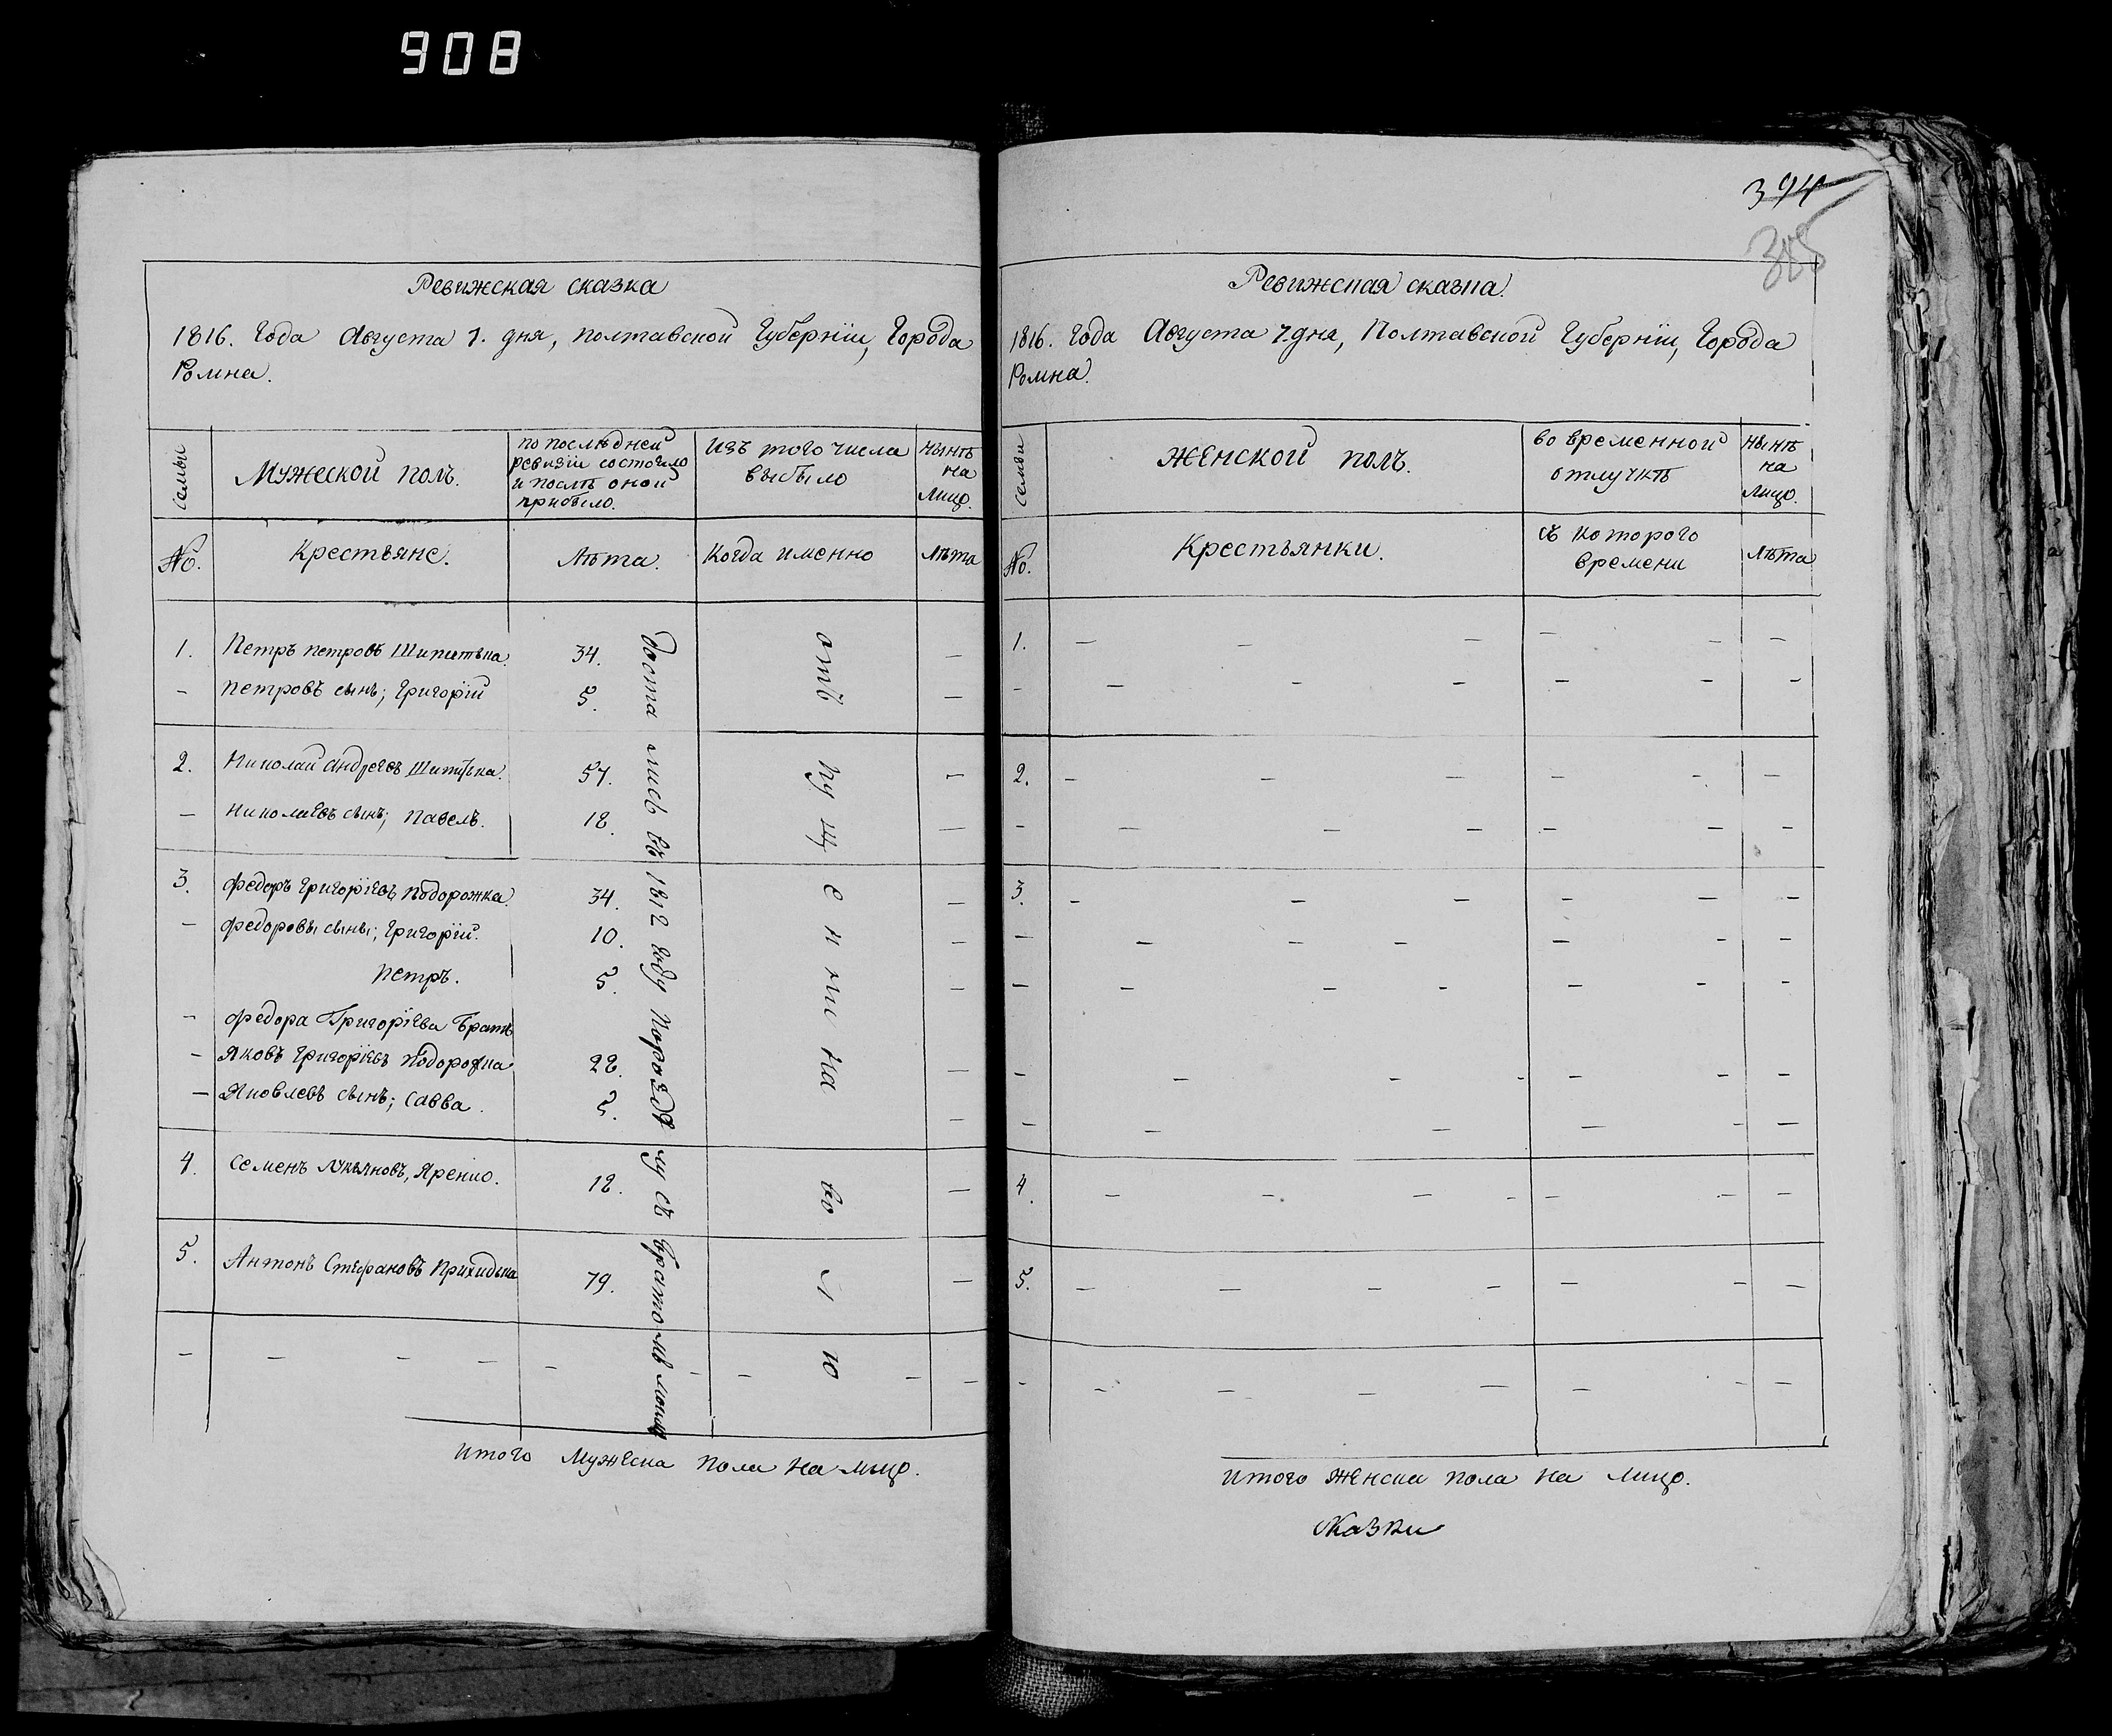 908
394
385
Ревижская сказка
1816. Года Августа 7. дня, полтавской Губернïи, Города
Ромна.
семьи
Мужеской полъ.
по последней
ревизïи состояло
и послѣ оной
прибыло.
Изъ того числа
выбыло
нынѣ
на
лицо.
№.
Крестьяне.
Лѣта.
Когда именно
Лѣта
1. Петръ петровъ 34. —
— петровъ сынъ; Григорïй 5. —
2. Николай андреевъ 57. —
— николаевъ сынъ; павелъ. 18. —
3. федоръ григорïевъ подорожка. 34. —
— федоровы сыны; григорïй. 10. —
петръ. 5. —
— федора Григорïева братъ
— Яковъ григорïевъ подорожка 28. —
— Яковлевъ сынъ; савва. 5. —
4. семенъ лукьяновъ, 18. —
5. Антонъ Стефановъ Прихидька 79. —
— — — — — — — — —
доста лись въ 1812 году по раздѣ лу съ братомъ моимъ
отъ пу щ е н ы на во л ю
итого мужеска пола на лицо.
Ревижская сказка.
1816. года Августа 7. дня, Полтавской Губернïи, Города
Ромна.
семьи
Женской полъ.
во временной
отлучкѣ
нынѣ
на
лицо.
№.
Крестьянки.
съ котораго
времени
лѣта
1. — — — — — —
— — — — — — —
2. — — — — — —
— — — — — — —
3. — — — — — —
— — — — — — —
— — — — — — —
— — — — — — —
— — — — — —
4. — — — — — — —
5. — — — — — — —
— — — — — — — —
итого женска пола на лицо.